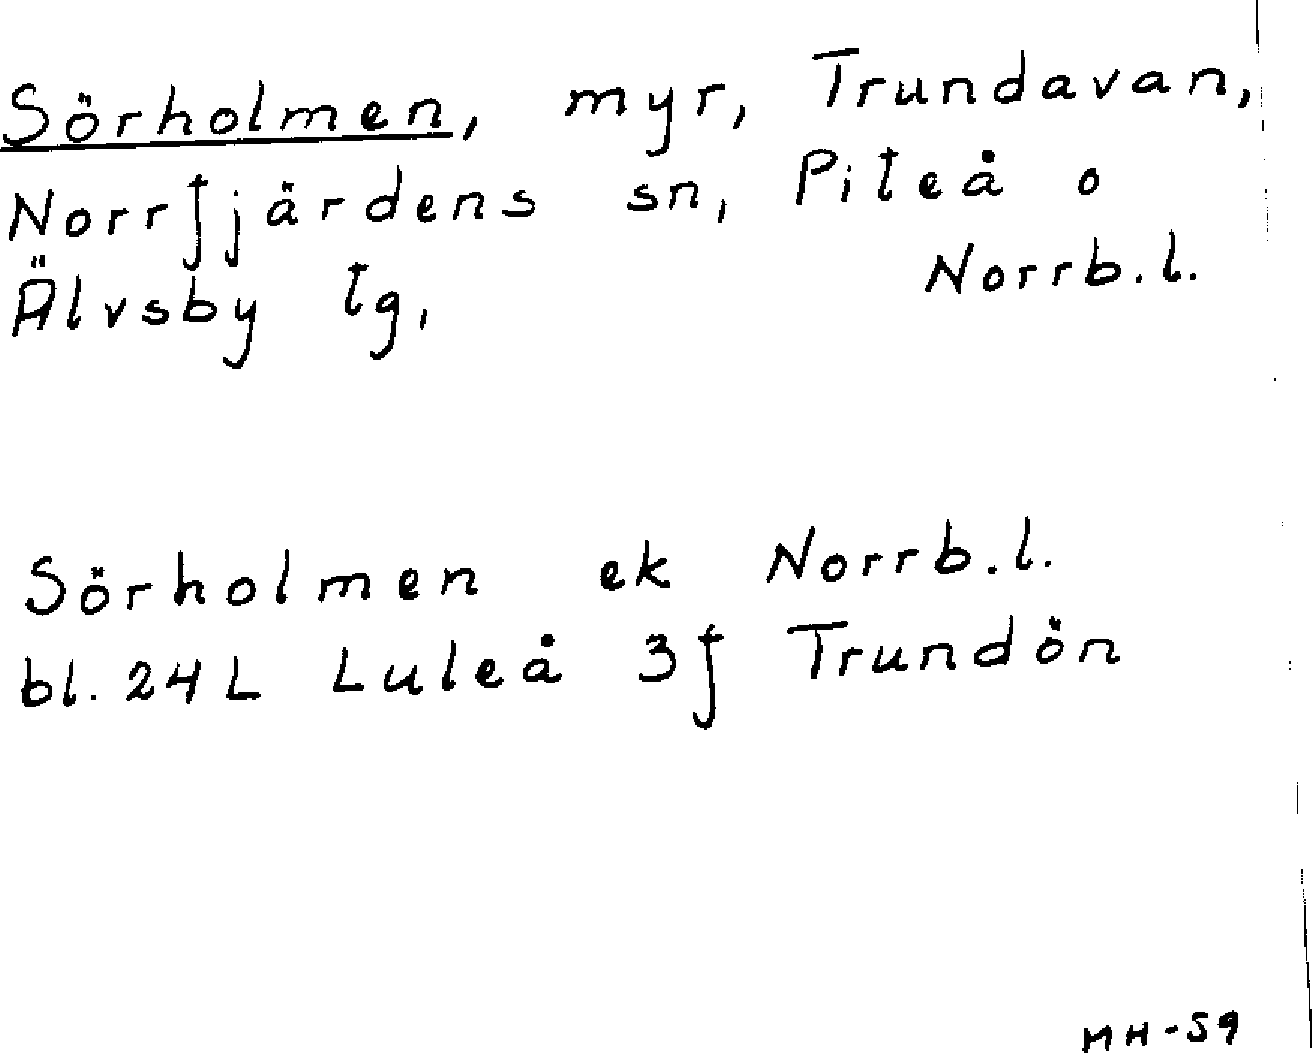 Sörholmen, myr, Trundavan,
Norrfjärdens sn, Piteå o
Älvsby tg, Norrb.l.
Sörholmen ek Norrb.l.
bl. 24L Luleå 3f Trundön
MH-59